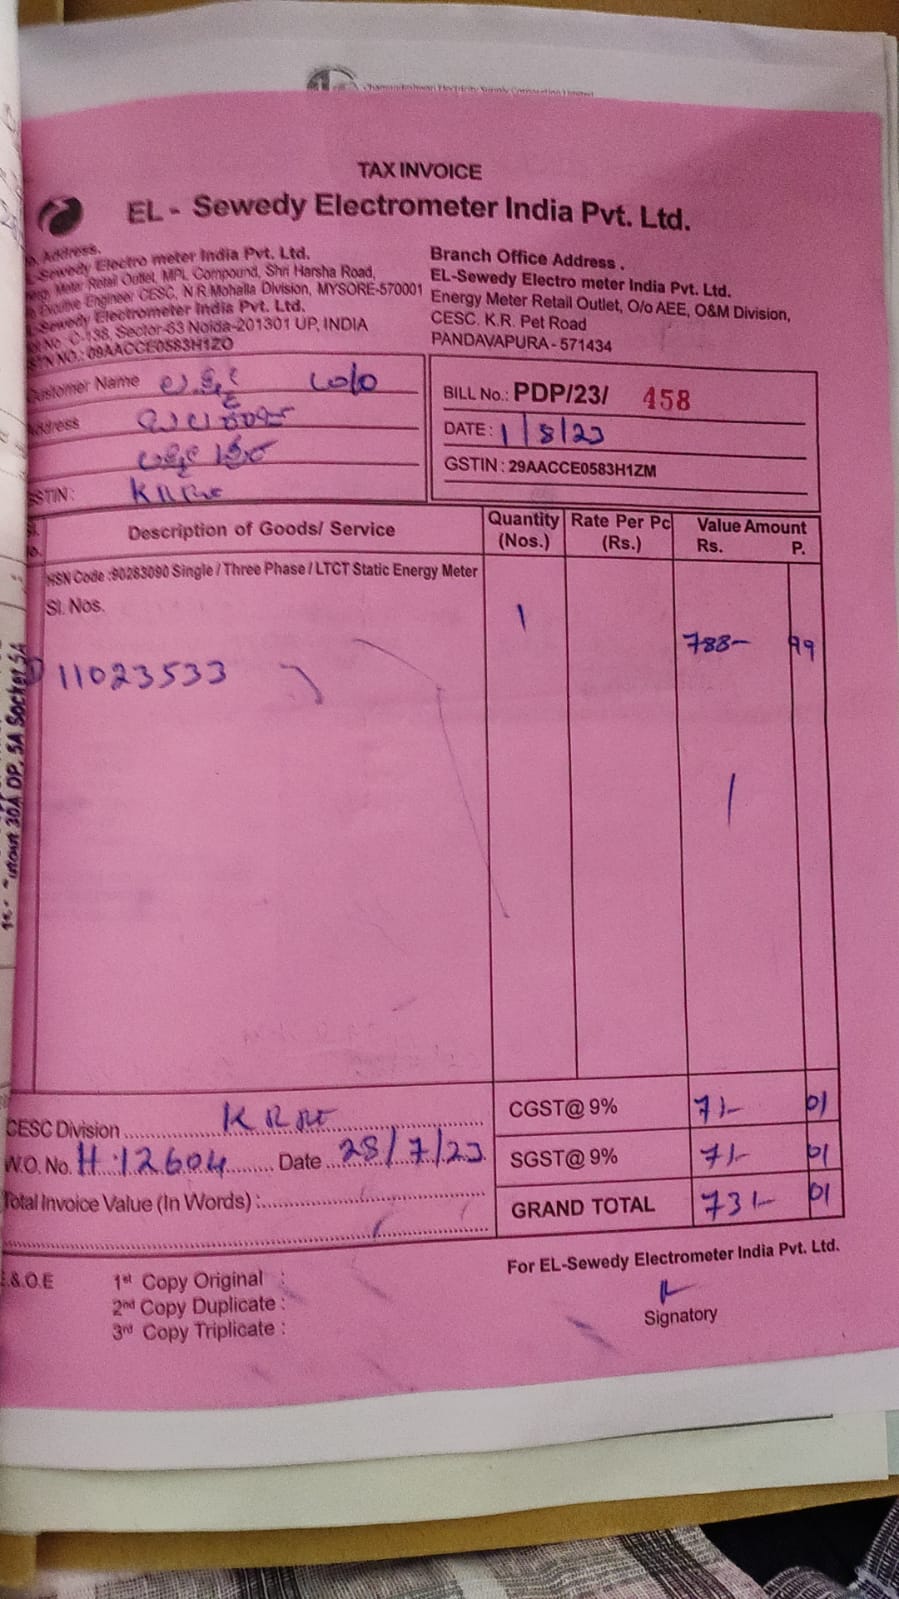 TAX INVOICE
EL - Sewedy Electrometer India Pvt. Ltd.
Address.
Sewedy Electro meter India Pvt. Ltd.
Meter Retail Outlet, MPL Compound, Shri Harsha Road,
Executive Engineer CESC, N.R.Mohalla Division, MYSORE-570001
Sewedy Electrometer India Pvt. Ltd.
No. C-138, Sector-63 Noida-201301 UP, INDIA
NO.: 09AACCE0583H1ZO
Branch Office Address .
EL-Sewedy Electro meter India Pvt. Ltd.
Energy Meter Retail Outlet, O/o AEE, O&M Division,
CESC. K.R. Pet Road
PANDAVAPURA - 571434
Customer Name
Address
GSTIN :
BILL No.: PDP/23/ 458
DATE : 1/8/23
GSTIN : 29AACCE0583H1ZM
Description of Goods/ Service
Quantity (Nos.)
Rate Per Pc (Rs.)
Value Amount
Rs. P.
HSN Code :90283090 Single / Three Phase / LTCT Static Energy Meter
Sl. Nos.
1
788- 99
1) 11023533
CESC Division
W.O. No. H 12604 Date 28/7/23
Total Invoice Value (In Words) :
CGST@ 9% 71- 01
SGST@ 9% 71- 01
GRAND TOTAL 931- 01
E.&.O.E
1st Copy Original :
2nd Copy Duplicate :
3rd Copy Triplicate :
For EL-Sewedy Electrometer India Pvt. Ltd.
Signatory
30A DP, 5A Socket 5A